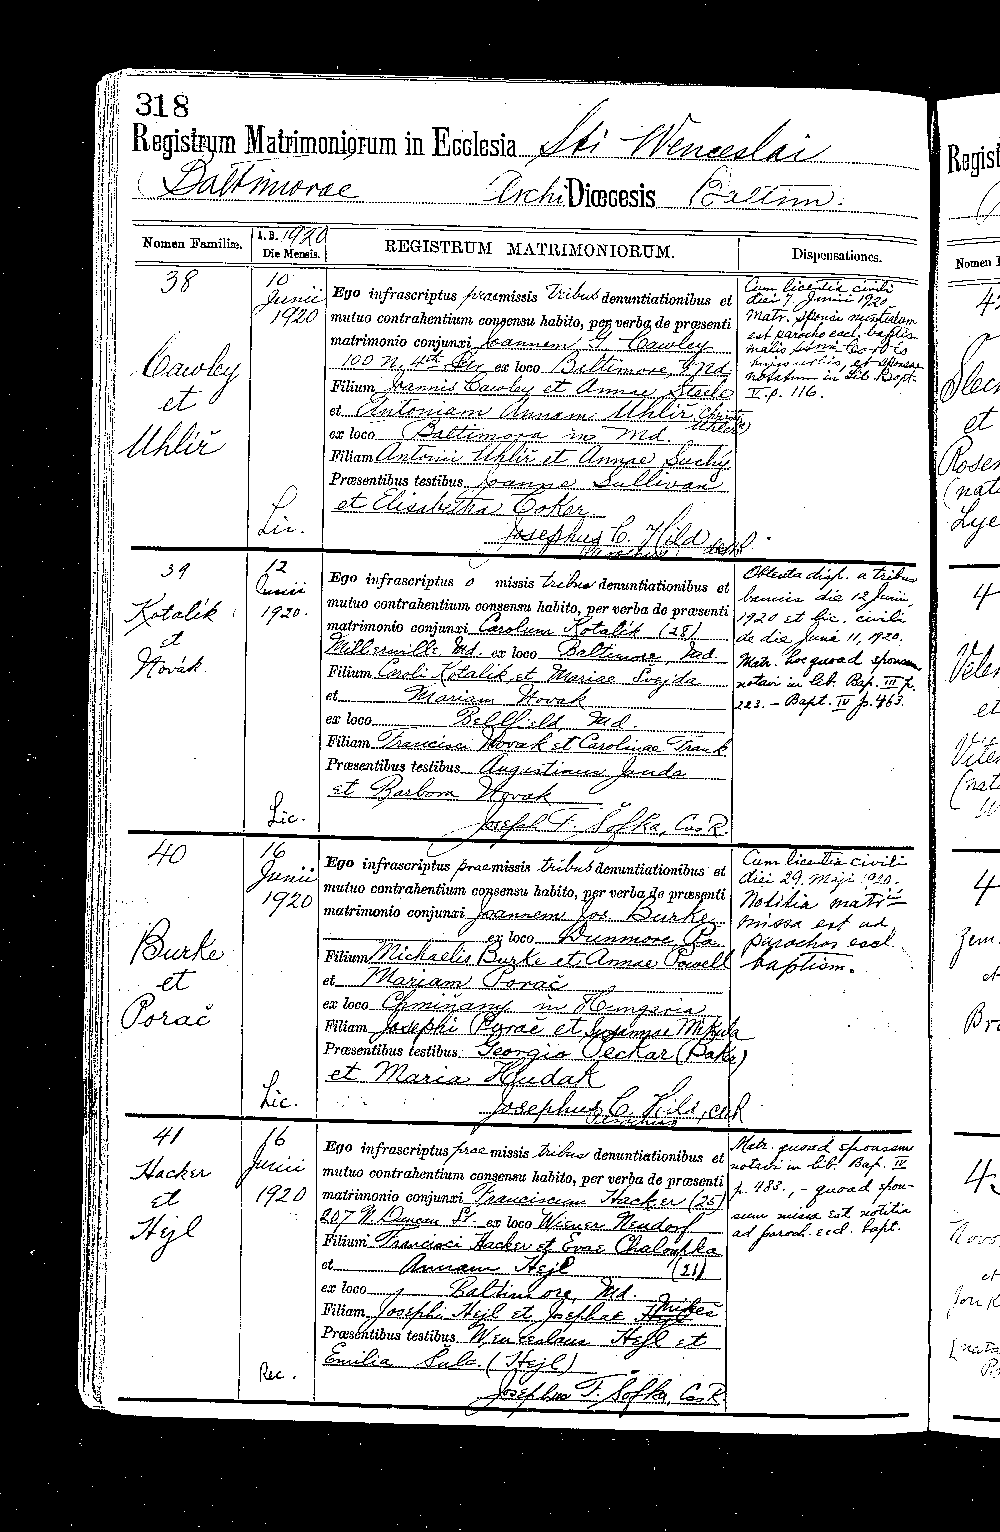 318
Registrum Matrimoniorum in Ecclesia Sti Wenceslai
Baltimorae Archi Diœcesis Baltim.
Nomen Familiæ.
A. D. 1920
Die Mensis.
REGISTRUM MATRIMONIORUM.
Dispensationes.
38
Cawley
et
Uhlíř
10
Junii
1920
Lic.
Ego infrascriptus praemissis tribus denuntiationibus et
mutuo contrahentium consensu habito, per verba de præsenti
matrimonio conjunxi Joannem G. Cawley
100 N. 4th Str ex loco Baltimore, Md.
Filium Joannis Cawley et Annae Steele
et Antoniam Annam Uhlíř
ex loco Baltimora in Md.
Filiam Antonii Uhlíř et Annae Suchý
Præsentibus testibus Joanne Sullivan
et Elisabetha Coker
Josephus C. Hild cssR
Cum licentia civili
diei 7. Junii 1920
Matr. sponsi nuntiatum
est parocho eccl. baptis
matis
notatum in Lib. Bapt.
V. p. 116.
39
Kotalík
et
Novák
12
Junii
1920.
Lic.
Ego infrascriptus o missis tribus denuntiationibus et
mutuo contrahentium consensu habito, per verba de præsenti
matrimonio conjunxi Carolum Kotalík (28)
Millersville Md. ex loco Baltimore, Md.
Filium Caroli Kotalík et Mariae Svejda
et Mariam Novak
ex loco Bellfield, Md.
Filiam Francisci Novak et Carolinae Frank
Præsentibus testibus Augustinus Janda
et Barbora Novak
Joseph T. Sofka, CssR.
Obtenta disp. a tribus
bannis die 12 Junii,
1920 et lic. civili
de die June 11, 1920.
Matr. hoc quoad sponsam
notavi in lib. Bap. III p.
223. – Bapt. IV p. 463.
40
Burke
et
Porač
16
Junii
1920
Lic.
Ego infrascriptus praemissis tribus denuntiationibus et
mutuo contrahentium consensu habito, per verba de præsenti
matrimonio conjunxi Joannem Jos. Burke
ex loco Dunmore Pa
Filium Michaelis Burke et Annae Powell
et Mariam Porač
ex loco Chmiňany in Hungaria
Filiam Josephi Porač et Susannae Mikula
Præsentibus testibus Georgio Peckar (Baks)
et Maria Hudak
Josephus C. Hild, cssR
Parochus
Cum licentia civili
diei 29. Maji 1920.
Notitia matrii
missa est ad
parochos eccl.
baptism.
41
Hacker
et
Hejl
16
Junii
1920
Rec.
Ego infrascriptus prae missis tribus denuntiationibus et
mutuo contrahentium consensu habito, per verba de præsenti
matrimonio conjunxi Franciscum Hacker (25)
207 N. Duncan St. ex loco Wiener Neudorf
Filium Francisci Hacker et Evae Chaloupka
et Annam Hejl (21)
ex loco Baltimore, Md.
Filiam Josephi Hejl et Josephae Mikeš
Præsentibus testibus Wenceslaus Hejl et
Emilia Sulc. (Hejl)
Josephus T. Sofka, CssR.
Matr. quoad sponsam
notavi in lib. Bap. IV
p. 483., – quoad spon-
sum missa est notitia
ad paroch. eccl. bapt.